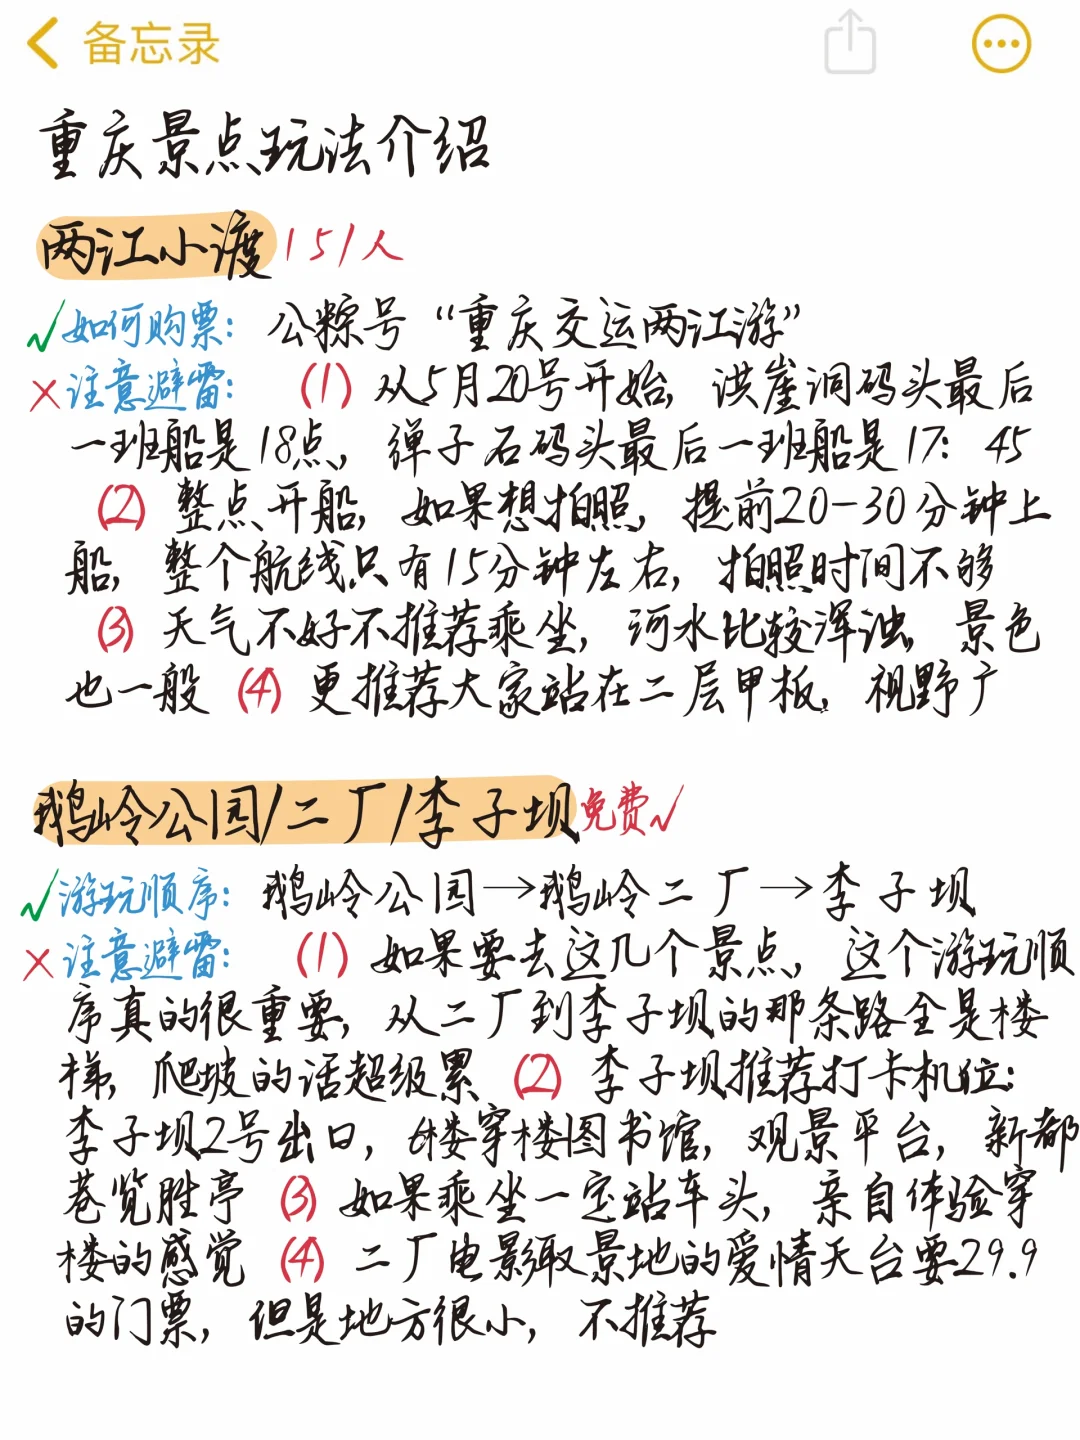 备忘录
重庆景点玩法介绍
两江小渡 15/人
√如何购票：公粽号“重庆交运两江游”
×注意避雷：(1) 从5月20号开始，洪崖洞码头最后
一班船是18点，弹子石码头最后一班船是17：45
(2) 整点开船，如果想拍照，提前20-30分钟上
船，整个航线只有15分钟左右，拍照时间不够
(3) 天气不好不推荐乘坐，河水比较浑浊，景色
也一般 (4) 更推荐大家站在二层甲板，视野广
鹅岭公园/二厂/李子坝 免费√
√游玩顺序：鹅岭公园→鹅岭二厂→李子坝
×注意避雷：(1) 如果要去这几个景点，这个游玩顺
序真的很重要，从二厂到李子坝的那条路全是楼
梯，爬坡的话超级累 (2) 李子坝推荐打卡机位：
李子坝2号出口，6楼穿楼图书馆，观景平台，新都
巷览胜亭 (3) 如果乘坐一定站车头，亲自体验穿
楼的感觉 (4) 二厂电影取景地的爱情天台要29.9
的门票，但是地方很小，不推荐